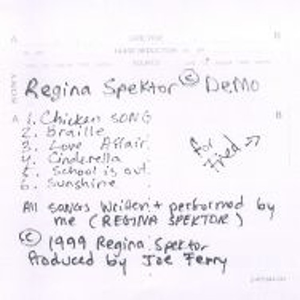 A
B
Regina Spektor © DEMO
1. Chicken SONG
2. Braille
3. Love Affair
4. Cinderella
5. School is out
6. Sunshine
for Fred →
All songs written + performed by
me (REGINA SPEKTOR)
© 1999 Regina Spektor
Produced by Joe Ferry